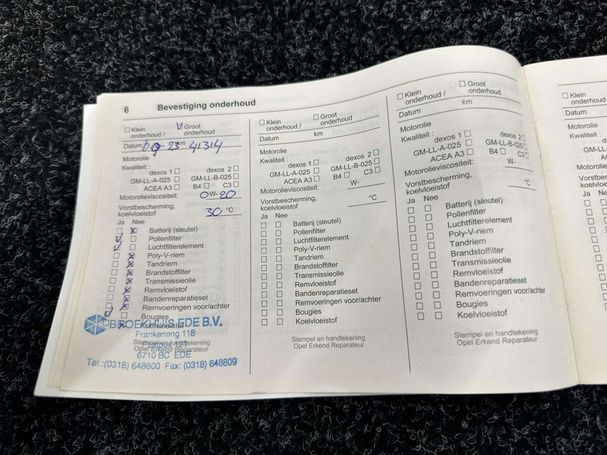 6 Bevestiging onderhoud
Klein onderhoud / Groot onderhoud
Datum 23 km 41314
Motorolie
Kwaliteit : dexos 1 dexos 2
GM-LL-A-025 GM-LL-B-025
ACEA A3 B4 C3
Motorolieviscositeit: 0W-20
Vorstbescherming, koelvloeistof 30 °C
Ja Nee
Batterij (sleutel)
Pollenfilter
Luchtfilterelement
Poly-V-riem
Tandriem
Brandstoffilter
Transmissieolie
Remvloeistof
Bandenreparatieset
Remvoeringen voor/achter
Bougies
Koelvloeistof
BROEKHUIS EDE B.V.
Frankenang 118
6710 BC EDE
Tel.:(0318) 648800 Fax: (0318) 648809
Stempel en handtekening
Opel Erkend Reparateur
Klein onderhoud / Groot onderhoud
Datum km
Motorolie
Kwaliteit : dexos 1 dexos 2
GM-LL-A-025 GM-LL-B-025
ACEA A3 B4 C3
Motorolieviscositeit: W-
Vorstbescherming, koelvloeistof °C
Ja Nee
Batterij (sleutel)
Pollenfilter
Luchtfilterelement
Poly-V-riem
Tandriem
Brandstoffilter
Transmissieolie
Remvloeistof
Bandenreparatieset
Remvoeringen voor/achter
Bougies
Koelvloeistof
Stempel en handtekening
Opel Erkend Reparateur
Klein onderhoud / Groot onderhoud
Datum km
Motorolie
Kwaliteit : dexos 1 dexos 2
GM-LL-A-025 GM-LL-B-025
ACEA A3 B4 C3
Motorolieviscositeit: W-
Vorstbescherming, koelvloeistof °C
Ja Nee
Batterij (sleutel)
Pollenfilter
Luchtfilterelement
Poly-V-riem
Tandriem
Brandstoffilter
Transmissieolie
Remvloeistof
Bandenreparatieset
Remvoeringen voor/achter
Bougies
Koelvloeistof
Stempel en handtekening
Opel Erkend Reparateur
Klein
onderhoud
Datum
Motorolie
Kwaliteit
GM-LL-
Ja Nee